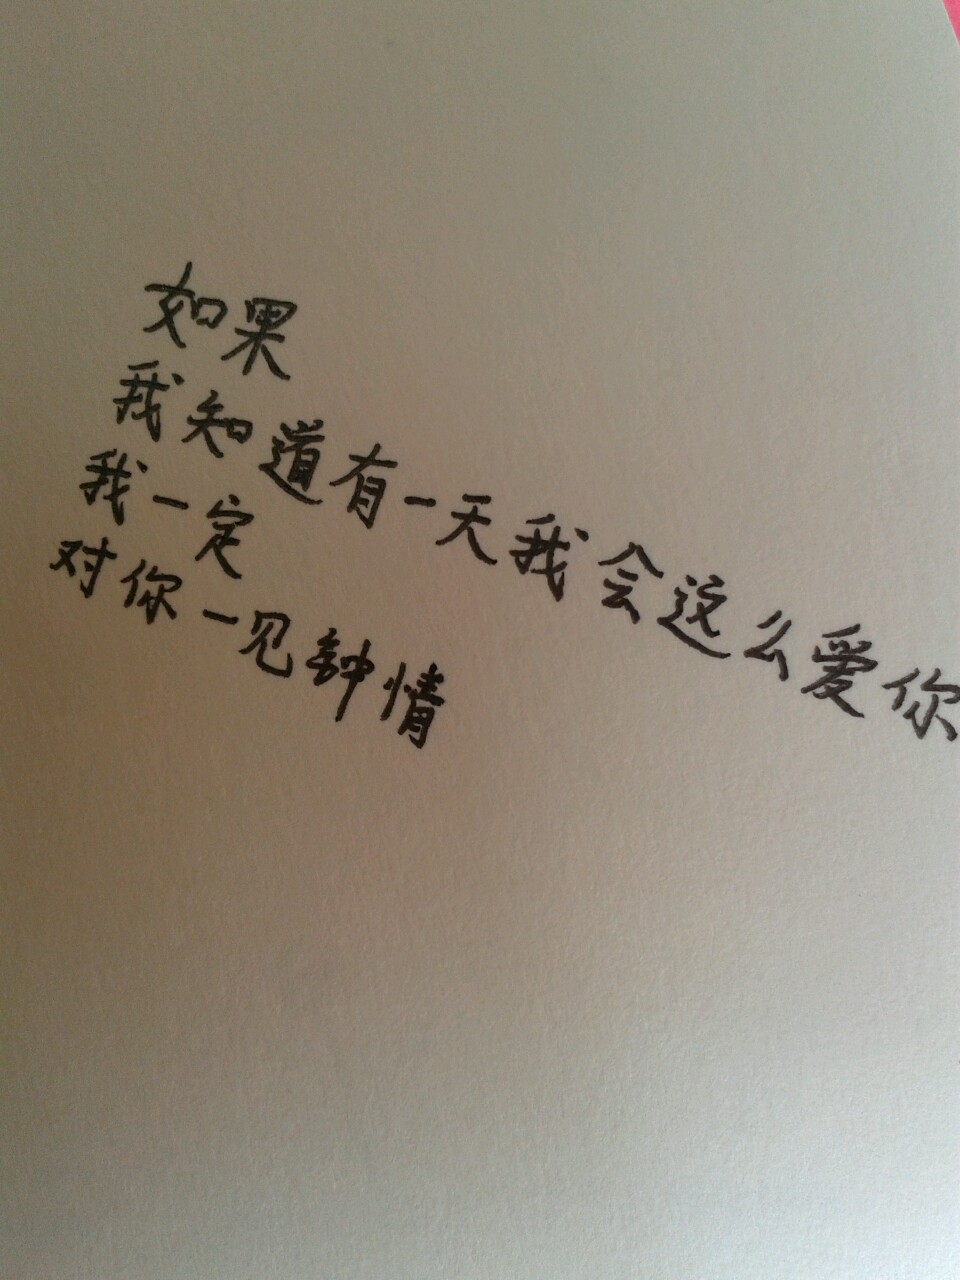 如果
我知道有一天我会这么爱你
我一定
对你一见钟情